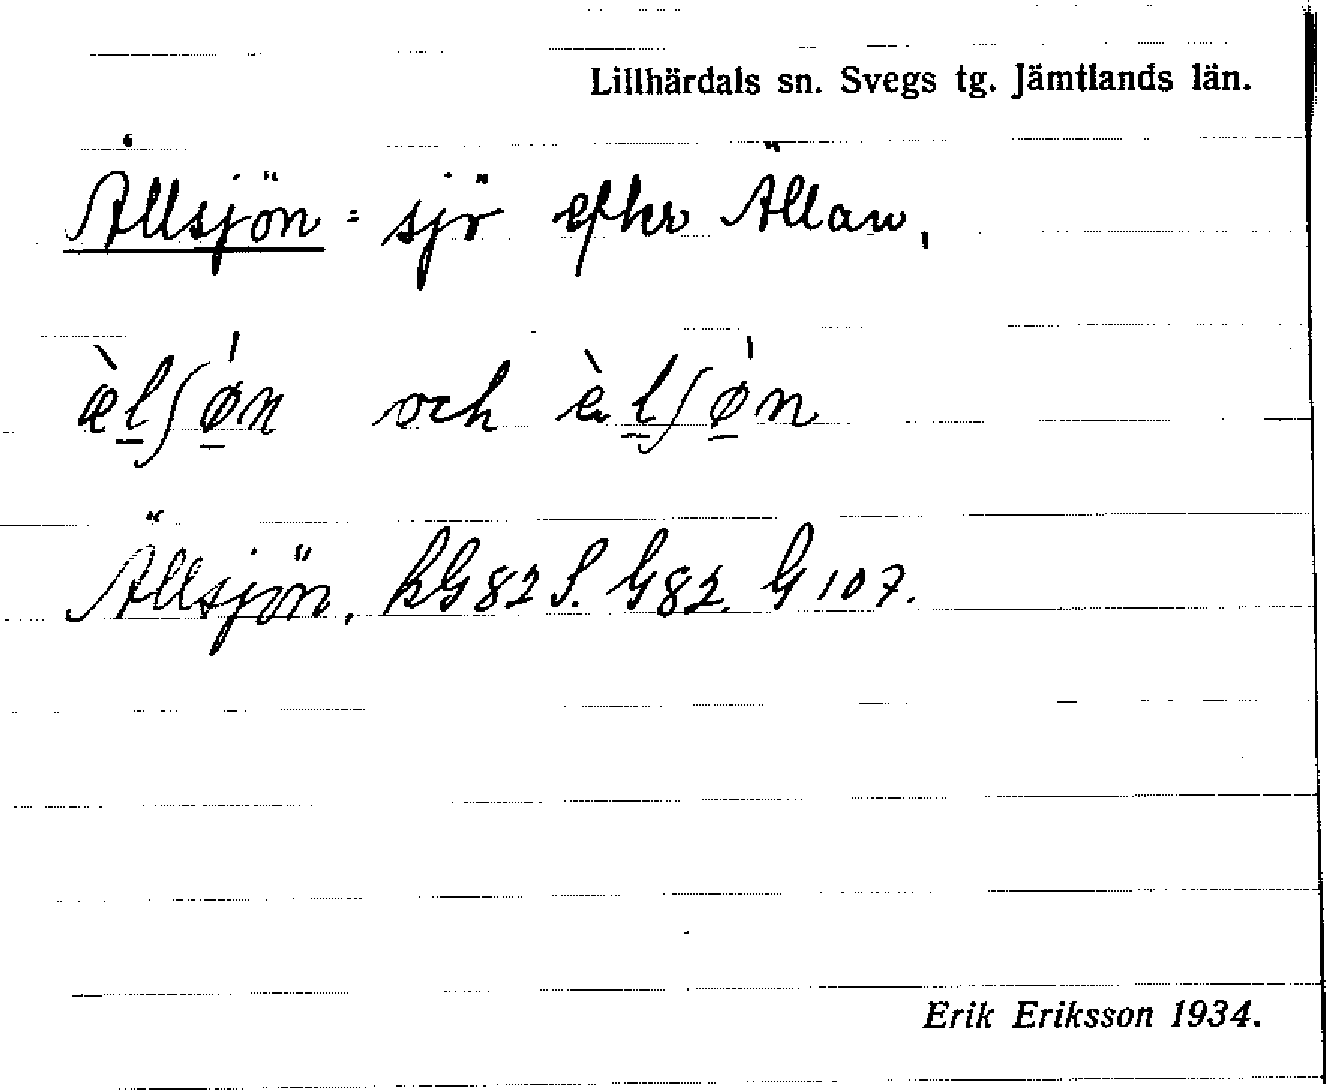 Lillhärdals sn. Svegs tg. Jämtlands län.
Ällsjön = sjö efter Ällan,
æ̀l̲ʃǿ̲n och è̀l̲ʃǿ̲n
Ällsjön. kG82S. G82. G107.
Erik Eriksson 1934.